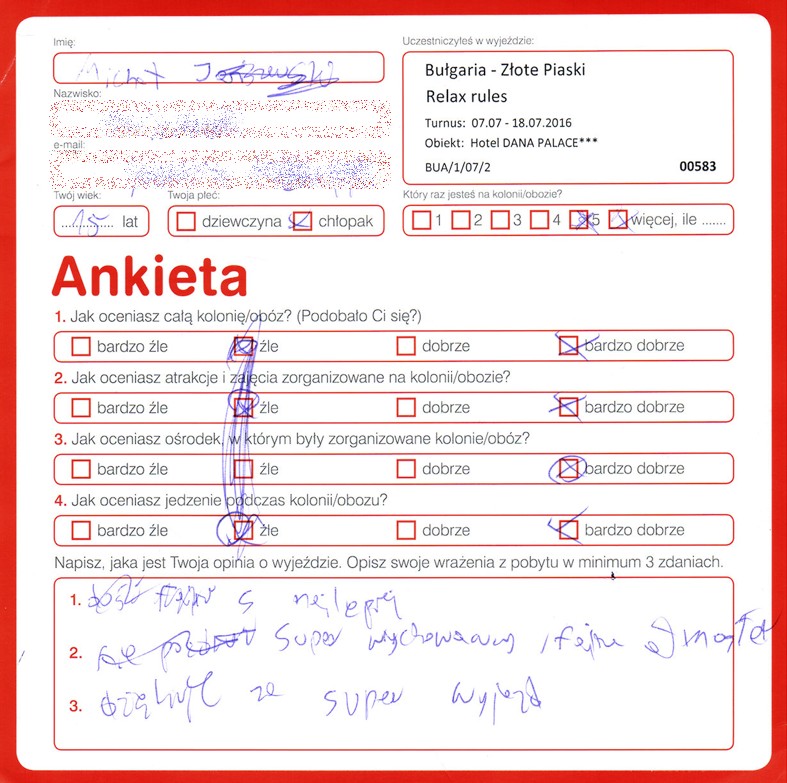 Imię:
Michał
Nazwisko:
e-mail:
Twój wiek:
15 lat
Twoja płeć:
dziewczyna chłopak
Uczestniczyłeś w wyjeździe:
Bułgaria - Złote Piaski
Relax rules
Turnus: 07.07 - 18.07.2016
Obiekt: Hotel DANA PALACE***
BUA/1/07/2 00583
Który raz jesteś na kolonii/obozie?
1 2 3 4 5 więcej, ile .......
Ankieta
1. Jak oceniasz całą kolonię/obóz? (Podobało Ci się?)
bardzo źle źle dobrze bardzo dobrze
2. Jak oceniasz atrakcje i zajęcia zorganizowane na kolonii/obozie?
bardzo źle źle dobrze bardzo dobrze
3. Jak oceniasz ośrodek, w którym były zorganizowane kolonie/obóz?
bardzo źle źle dobrze bardzo dobrze
4. Jak oceniasz jedzenie podczas kolonii/obozu?
bardzo źle źle dobrze bardzo dobrze
Napisz, jaka jest Twoja opinia o wyjeździe. Opisz swoje wrażenia z pobytu w minimum 3 zdaniach.
1. s nejleprij
2. Super wychowawcy, fajna
3. dziękuję ze super wyjazd